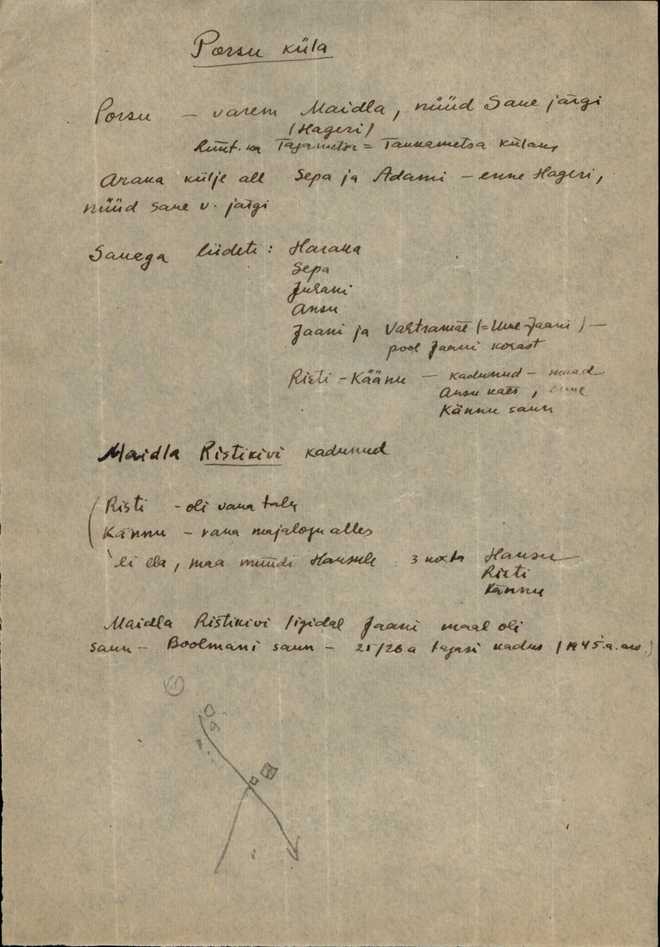 Porsu küla
Porsu — varem Maidla, nüüd Sane järgi
(Hageri)
Tajametsa = Tannametsa külana
Arana külje all Sepa ja Adami — enne Hageri,
nüüd Sane v. järgi
Sanega liideti: Harana
Sepa
Juhani
Ansu
Jaani ja Vahtramäe (= Uue-Jaani) —
pool Jaani kohast
Risti - Käänu — kadunud — maad
Ansu käes, enne
Kännu saun
Maidla Ristikivi kadunud
Risti - oli vana talu
Kännu — vana majalogu alles
ei ela, maa müüdi Hansule 3 kohta Hansu
Risti
Kännu
Maidla Ristikivi ligidal Jaani maal oli
saun — Boolmani saun — 25/26 a tagasi kadus (1945.a.